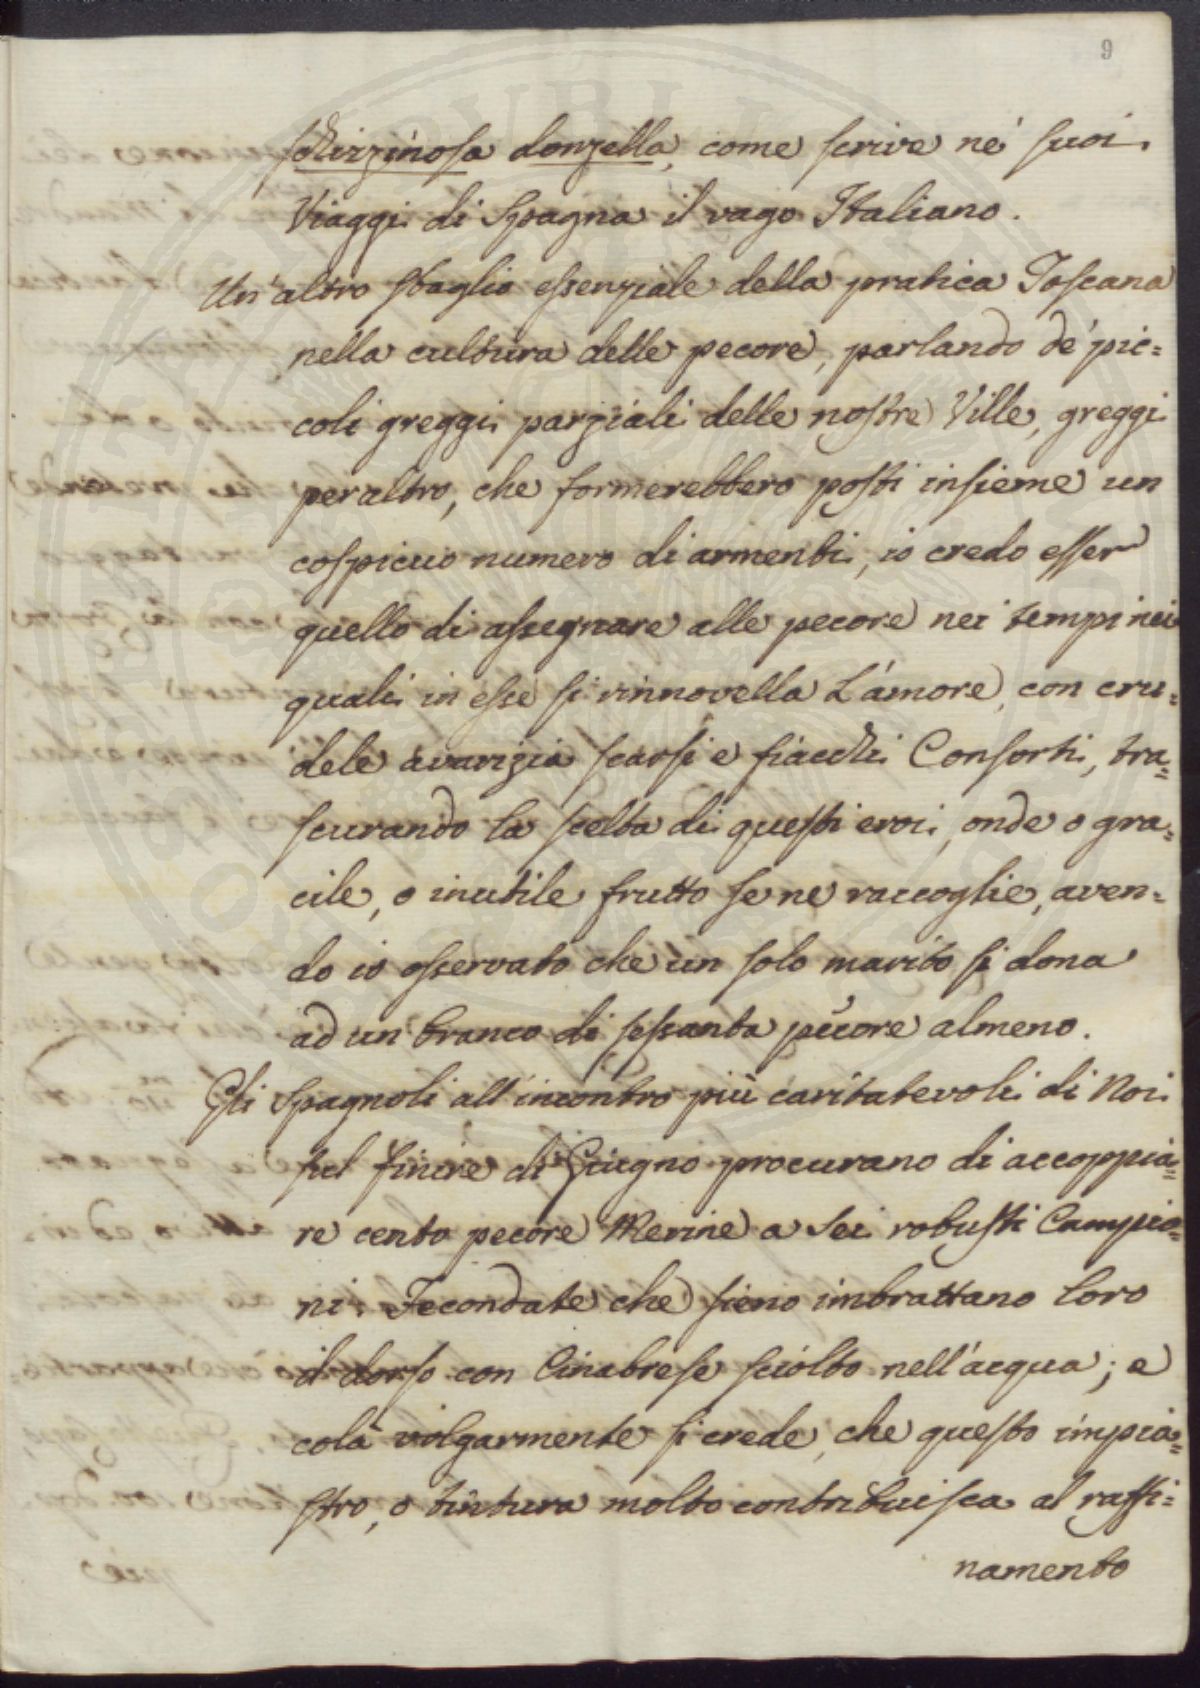 9
schizzinosa donzella, come scrive ne' suoi
Viaggi di Spagna il vago Italiano.
Un' altro sbaglio essenziale della pratica Toscana
nella cultura delle pecore, parlando de' pic=
coli greggi parziali delle nostre Ville, greggi
peraltro, che formerebbero posti insieme un
cospicuo numero di armenti, io credo esser
quello di assegnare alle pecore nei tempi nei
quali in esse si rinnovella L'amore, con cru=
dele avarizia scarsi e fiacchi Consorti, tra=
scurando la scelta di questi eroi, onde o gra=
cile, o inutile frutto se ne raccoglie, aven=
do io osservato che un solo marito si dona
ad un branco di sessanta pecore almeno.
Gli Spagnoli all'incontro più caritatevoli di Noi
sul finire di Giugno procurano di accoppia=
re cento pecore Merine a Sei robusti Campio=
ni. Fecondate che sieno imbrattano loro
il dorso con Cinabrese sciolto nell'acqua; e
colà volgarmente si crede, che questo impia=
stro, o tintura molto contribuisca al raffi=
namento